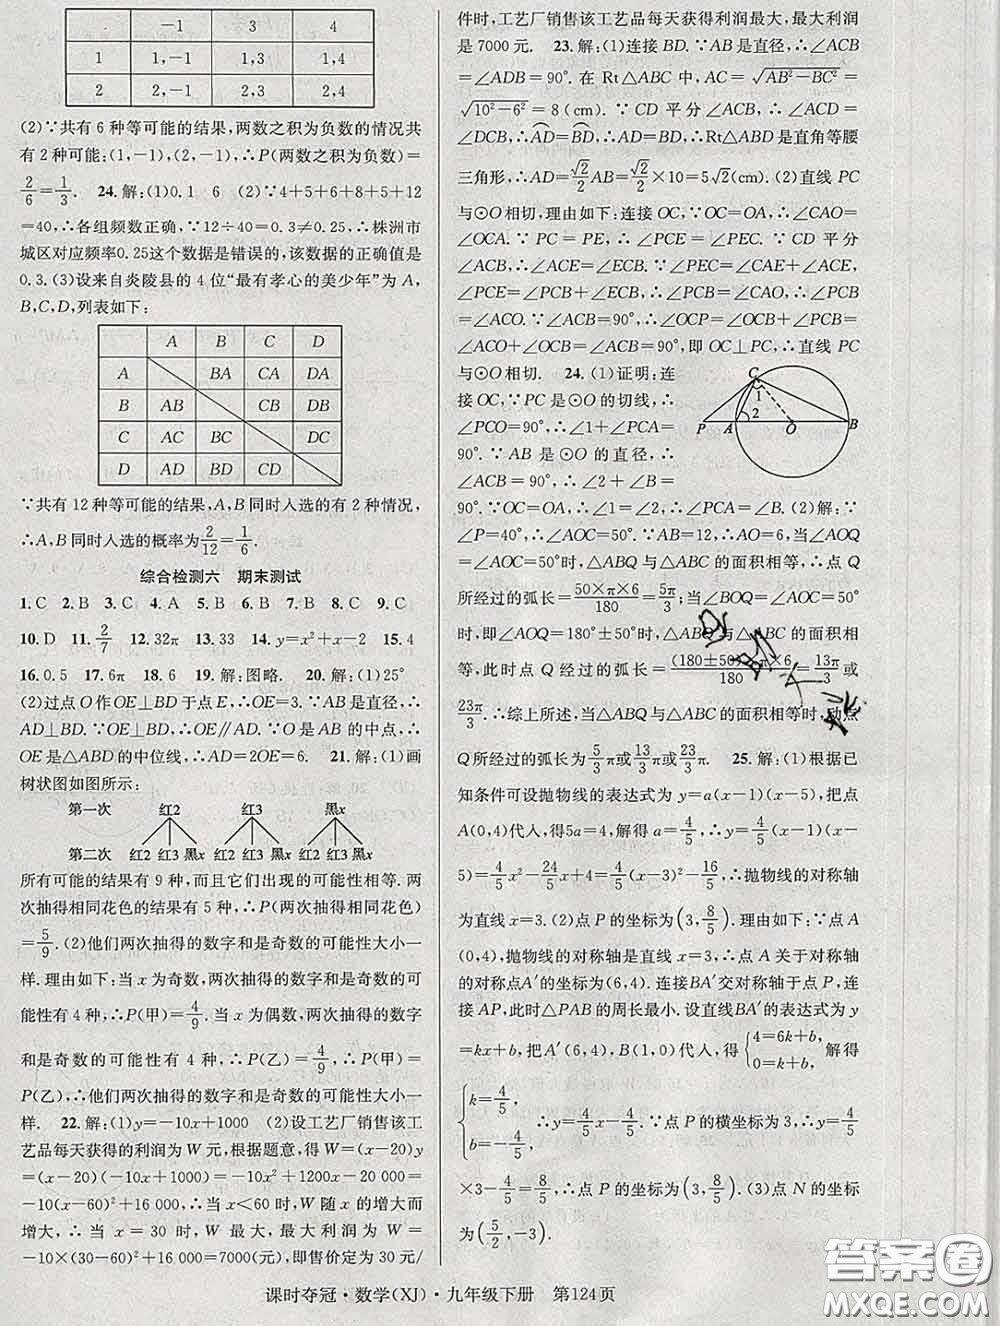 . -1 3 4
1 1,-1 1,3 1,4
2 2,-1 2,3 2,4
(2)∵共有6种等可能的结果,两数之积为负数的情况共
有2种可能:(1,-1),(2,-1),∴P(两数之积为负数)=
2/6=1/3. 24.解:(1)0.1 6 (2)∵4+5+6+8+5+12
=40,∴各组频数正确,∵12÷40=0.3≠0.25,∴株洲市
城区对应频率0.25这个数据是错误的,该数据的正确值是
0.3.(3)设来自炎陵县的4位“最有孝心的美少年”为A,
B,C,D,列表如下:
A B C D
A BA CA DA
B AB CB DB
C AC BC DC
D AD BD CD
∵共有12种等可能的结果,A,B同时入选的有2种情况,
∴A,B同时入选的概率为2/12=1/6.
综合检测六 期末测试
1.C 2.B 3.C 4.A 5.B 6.B 7.B 8.C 9.C
10.D 11.2/7 12.32π 13.33 14.y=x²+x-2 15.4
16.0.5 17.6π 18.6 19.解:图略. 20.解:(1)25°
(2)过点O作OE⊥BD于点E,∴OE=3.∵AB是直径,
∴AD⊥BD.∵OE⊥BD,∴OE∥AD.∵O是AB的中点,
∴OE是△ABD的中位线,∴AD=2OE=6. 21.解:(1)画
树状图如图所示:
第一次 红2 红3 黑x
第二次 红2 红3 黑x 红2 红3 黑x 红2 红3 黑x
所有可能的结果有9种,而且它们出现的可能性相等.两
次抽得相同花色的结果有5种,∴P(两次抽得相同花色)
=5/9.(2)他们两次抽得的数字和是奇数的可能性大小一
样.理由如下:当x为奇数,两次抽得的数字和是奇数的可
能性有4种,∴P(甲)=4/9.当x为偶数,两次抽得的数字
和是奇数的可能性有4种,∴P(乙)=4/9,∴P(甲)=
P(乙),∴他们两次抽得的数字和是奇数的可能性大小一
样. 22.解:(1)y=-10x+1000 (2)设工艺厂销售该工
艺品每天获得的利润为W元,根据题意,得W=(x-20)y
=(x-20)(-10x+1000)=-10x²+1200x-20 000=
-10(x-60)²+16 000,∴当x<60时,W随x的增大而
增大,∴当x=30时,W最大,最大利润为W=
-10×(30-60)²+16 000=7000(元),即售价定为30元/
件时,工艺厂销售该工艺品每天获得利润最大,最大利润
是7000元. 23.解:(1)连接BD.∵AB是直径,∴∠ACB
=∠ADB=90°.在Rt△ABC中,AC=√(AB²-BC²)=
√(10²-6²)=8(cm).∵CD平分∠ACB,∴∠ACD=
∠DCB,∴AD⌒=BD⌒,∴AD=BD,∴Rt△ABD是直角等腰
三角形,∴AD=√2/2AB=√2/2×10=5√2(cm).(2)直线PC
与⊙O相切,理由如下:连接OC,∵OC=OA,∴∠CAO=
∠OCA.∵PC=PE,∴∠PCE=∠PEC.∵CD平分
∠ACB,∴∠ACE=∠ECB.∵∠PEC=∠CAE+∠ACE,
∠PCE=∠PCB+∠ECB,∴∠PCB=∠CAO,∴∠PCB=
∠ACO.∵∠ACB=90°,∴∠OCP=∠OCB+∠PCB=
∠OCB+∠ACO=∠ACB=90°,即OC⊥PC,∴直线PC
与⊙O相切. 24.(1)证明:连
接OC,∵PC是⊙O的切线,∴
∠PCO=90°,∴∠1+∠PCA=
90°.∵AB是⊙O的直径,∴
∠ACB=90°,∴∠2+∠B=
90°.∵OC=OA,∴∠1=∠2,∴∠PCA=∠B.(2)解:∵
∠P=40°,∴∠AOC=50°.∵AB=12,∴AO=6,当
∠AOQ=∠AOC=50°时,△ABQ与△ABC的面积相等,∴点Q
所经过的弧长=50×π×6/180=5π/3;当∠BOQ=∠AOC=50°
时,即∠AOQ=180°±50°时,△ABQ与△ABC的面积相
等,此时点Q经过的弧长=(180±50)×π×6/180=13π/3或
23π/3.∴综上所述,当△ABQ与△ABC的面积相等时,动点
Q所经过的弧长为5/3π或13/3π或23/3π. 25.解:(1)根据已
知条件可设抛物线的表达式为y=a(x-1)(x-5),把点
A(0,4)代入,得5a=4,解得a=4/5,∴y=4/5(x-1)(x-
5)=4/5x²-24/5x+4=4/5(x-3)²-16/5,∴抛物线的对称轴
为直线x=3.(2)点P的坐标为(3,8/5).理由如下:∵点A
(0,4),抛物线的对称轴是直线x=3,∴点A关于对称轴
的对称点A′的坐标为(6,4).连接BA′交对称轴于点P,连
接AP,此时△PAB的周长最小.设直线BA′的表达式为y
=kx+b,把A′(6,4),B(1,0)代入,得{4=6k+b, 0=k+b,解得
{k=4/5, b=-4/5,∴y=4/5x-4/5.∵点P的横坐标为3,∴y=4/5
×3-4/5=8/5,∴点P的坐标为(3,8/5).(3)点N的坐标
为(5/2,-3).
C 1 2 P A O B
课时夺冠·数学(XJ)·九年级下册 第124页
答案圈
MXQE.COM